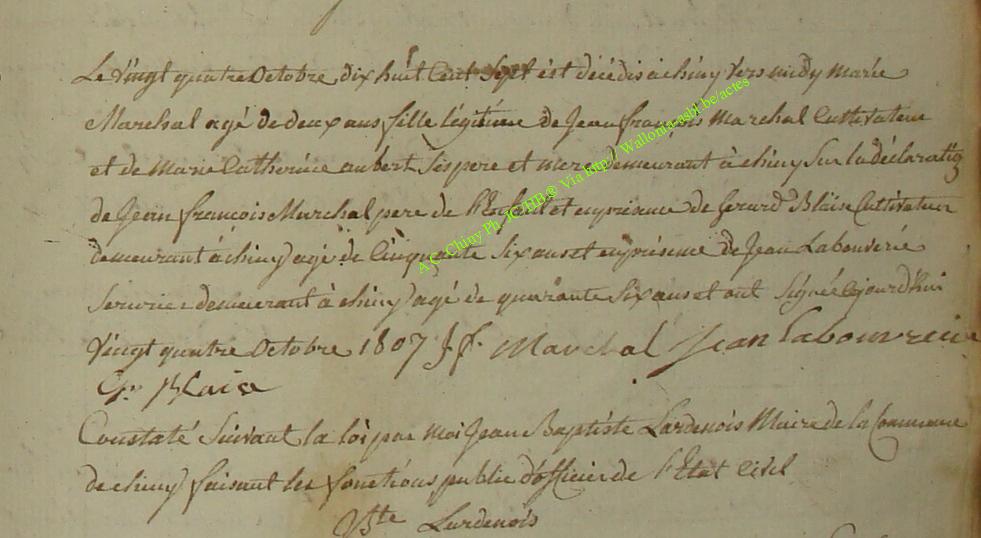 Le vingt quatre Octobre dix huit Cent Sept est décédis à chiny vers midy marie
Marchal agé de deux ans fille légitime de Jean françois Marchal Cultivateur
et de Marie Catherine aubert Ses pere et mere demeurant à chiny Sur la déclaration
de Jean francois Marchal pere de l'Enfant et en présence de Gerard Blaise Cultivateur
demeurant à chiny agé de Cinquante Six ans et en présence de Jean Labouverie
demeurant à chiny agé de quarante Six ans et ont Signé Cejourd'hui
vingt quatre Octobre 1807 J f. Marchal Jean labouverie
Gr. Blaise
Constaté Suivant la loi par moi Jean Baptiste Lardenois Maire de la Commune
de chiny faisant les fonctions public d'officier de l'Etat Civil
JBte Lardenois
AC Chiny Ph. JCHB@ Via http// Wallonia-asbl.be/actes